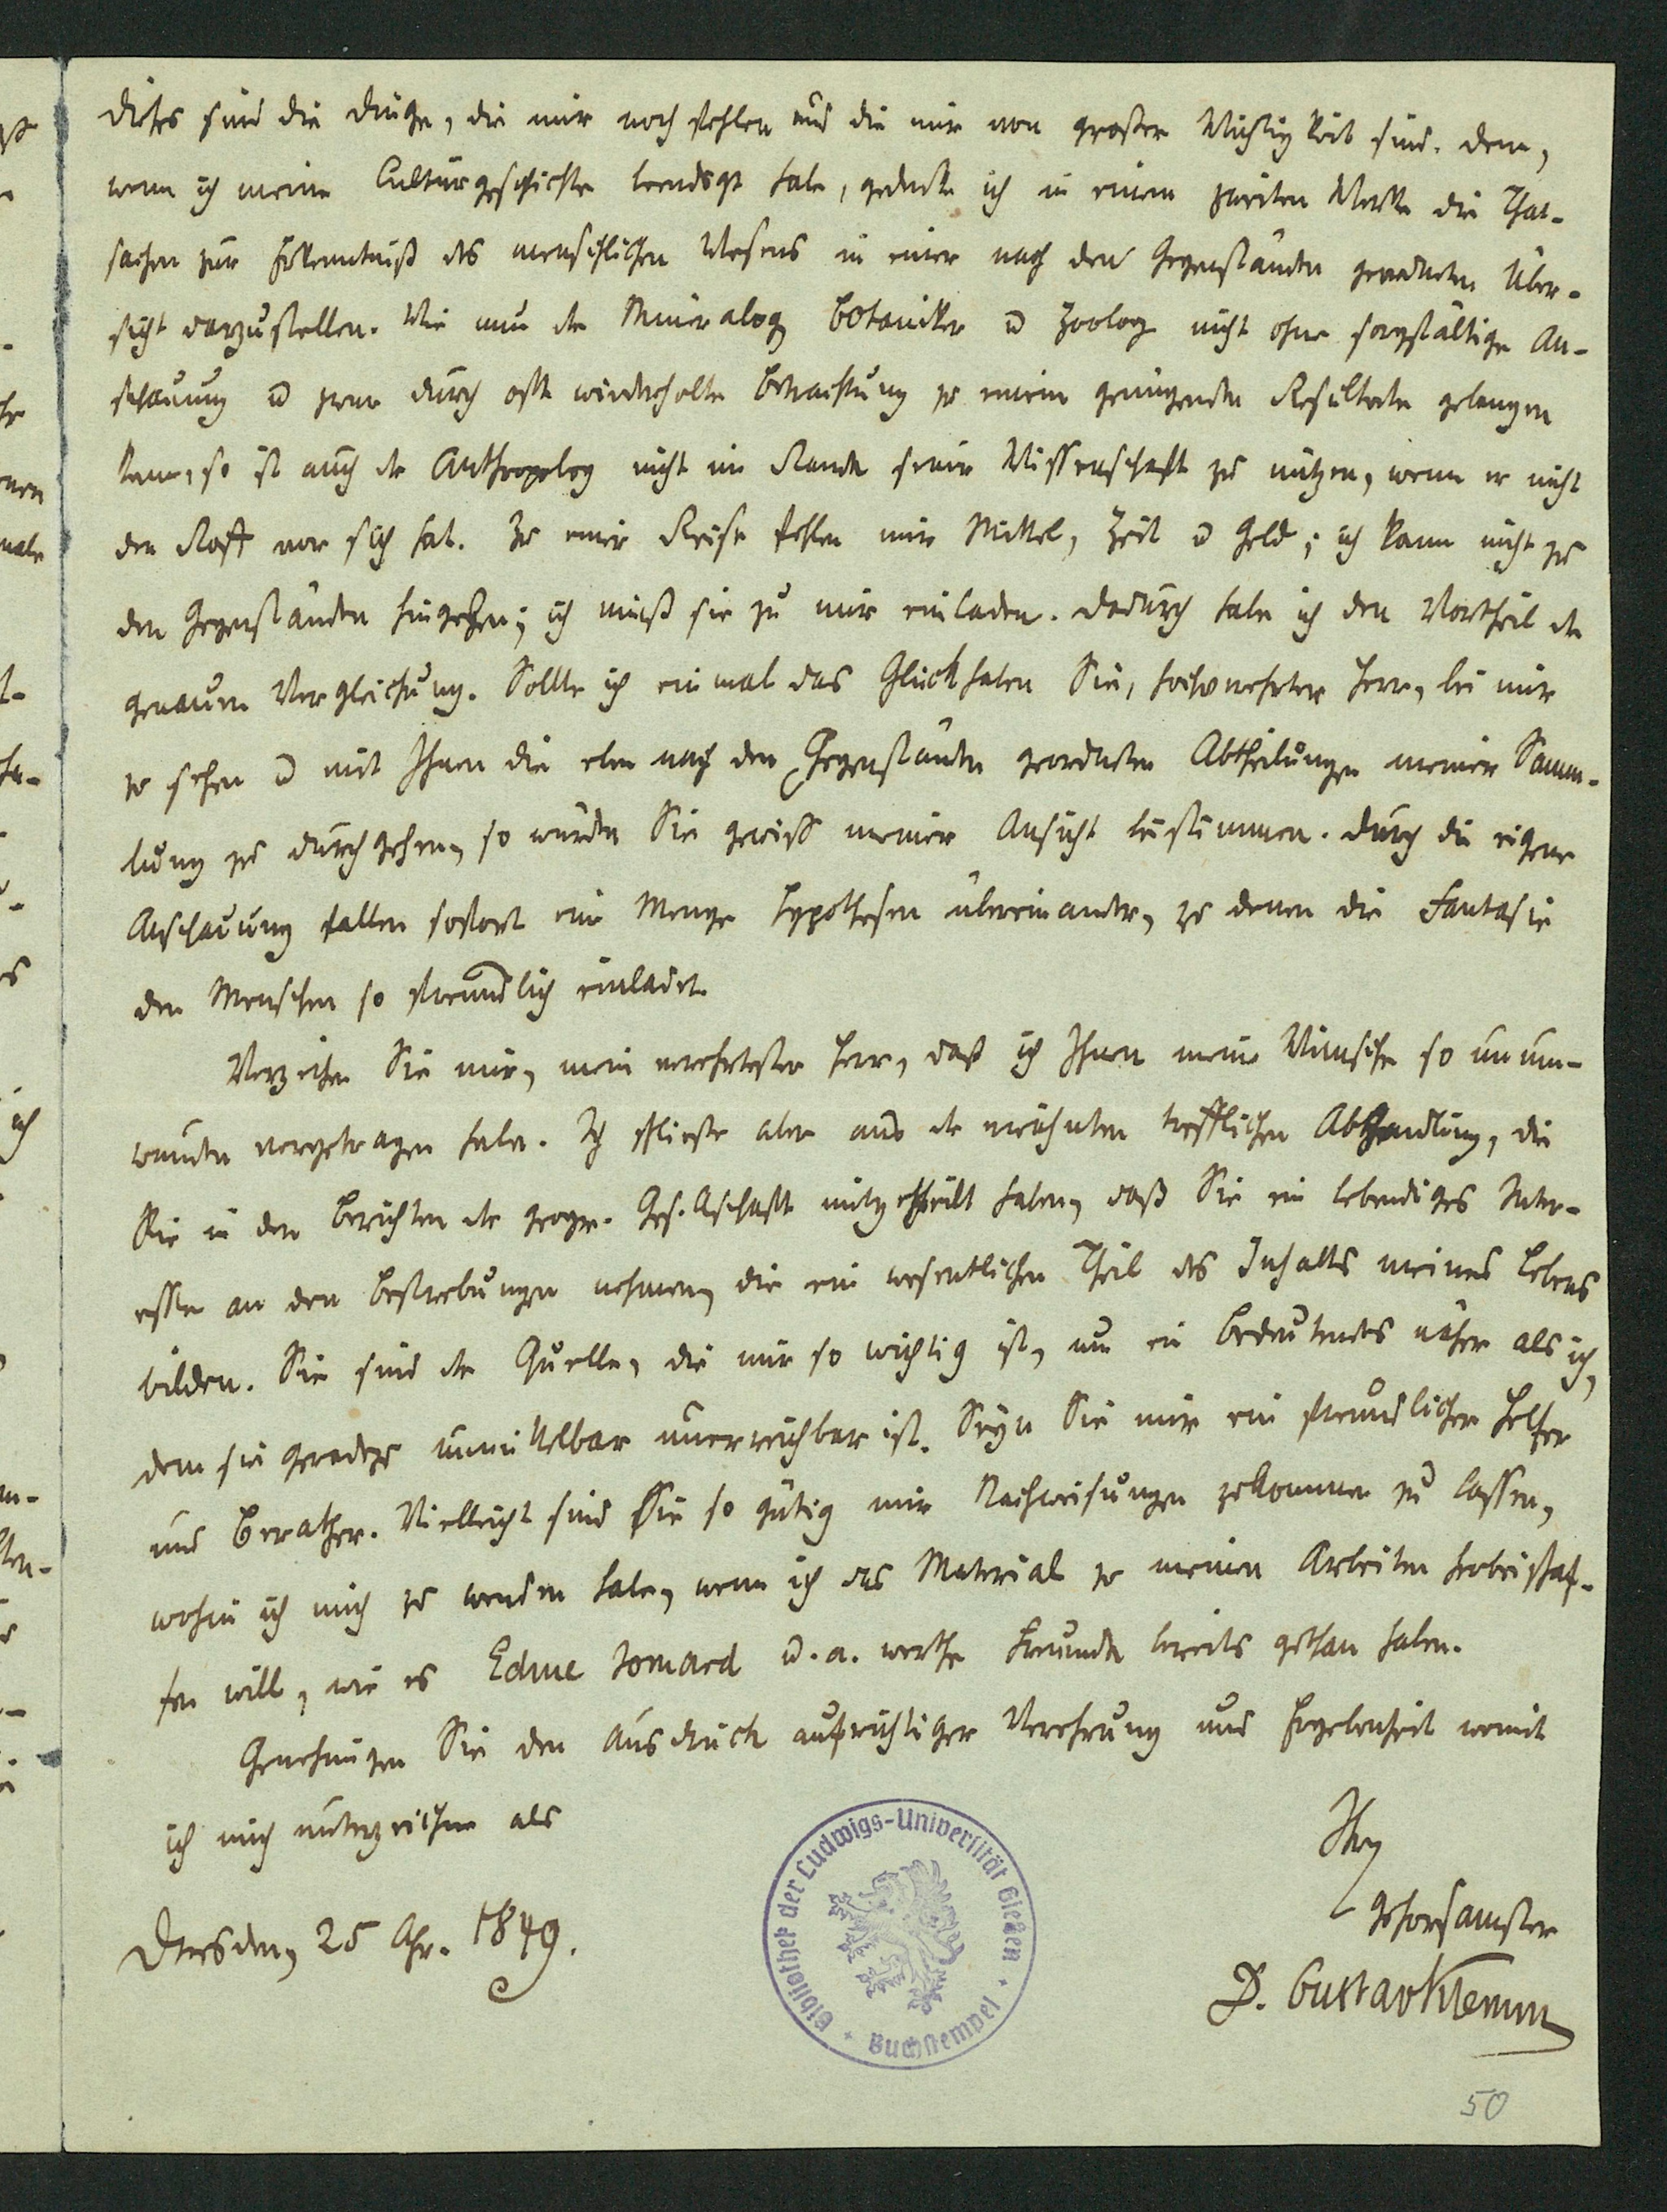 Dieses sind die Dinge, die mir noch fehlen und die mir von großer Wichtigkeit sind. Denn,
wenn ich meine Culturgeschichte beendigt habe, gedenke ich in einem zweiten Werke die That-
sachen zur Erkenntniß des menschlichen Wesens in einer nach den Gegenständen geordneten Über-
sicht darzustellen. Wie nun der Mineralog Botaniker u Zoolog nicht ohne sorgfältige An-
schauung u zwar durch oft wiederholte Betrachtung zu einem genügenden Resultate gelangen
kann, so ist auch der Anthropolog nicht im Stande seine Wissenschaft zu nützen, wenn er nicht
den Stoff vor sich hat. Zu einer Reise fehlen mir Mittel, Zeit u Geld; ich kann nicht zu
den Gegenständen hingehen; ich muß sie zu mir einladen. Dadurch habe ich den Vortheil der
genauen Vergleichung. Sollte ich einmal das Glück haben Sie, hochverehrter Herr, bei mir
zu sehen u mit Ihnen die eben nach den Gegenständen geordneten Abtheilungen meiner Samm-
lung zu durchgehen, so würden Sie gewiss meiner Ansicht beistimmen. Durch die eigene
Anschauung fallen sofort eine Menge Hypothesen übereinander, zu denen die Fantasie
den Menschen so freundlich einladet.
Verzeihen Sie mir, mein verehrtester Herr, daß ich Ihnen meine Wünsche so unum-
wunden vorgetragen habe. Ich schließe aber aus der erwähnten trefflichen Abhandlung, die
Sie in den Berichten der geogr. Gesellschaft mitgetheilt haben, daß Sie ein lebendiges Inter-
esse an den Bestrebungen nehmen, die ein wesentlichen Theil des Inhalts meines Lebens
bilden. Sie sind der Quelle, die mir so wichtig ist, um ein Bedeutendes näher als ich,
dem sie geradezu unmittelbar unerreichbar ist. Seyn Sie mir ein freundlicher Helfer
und Berather. Vielleicht sind Sie so gütig mir Nachweisungen zukommen zu lassen,
wohin ich mich zu wenden habe, wenn ich das Material zu meinen Arbeiten herbeischaf-
fen will, wie es Edme Jomard u. a. werthe Freunde bereits gethan haben.
Genehmigen Sie den Ausdruck aufrichtiger Verehrung und Ergebenheit womit
ich mich unterzeichne als
Ihr
gehorsamster
Dresden, 25 Apr. 1849.
D. Gustav Klemm
Bibliothek der Ludwigs-Universität Gießen
Buchstempel
50